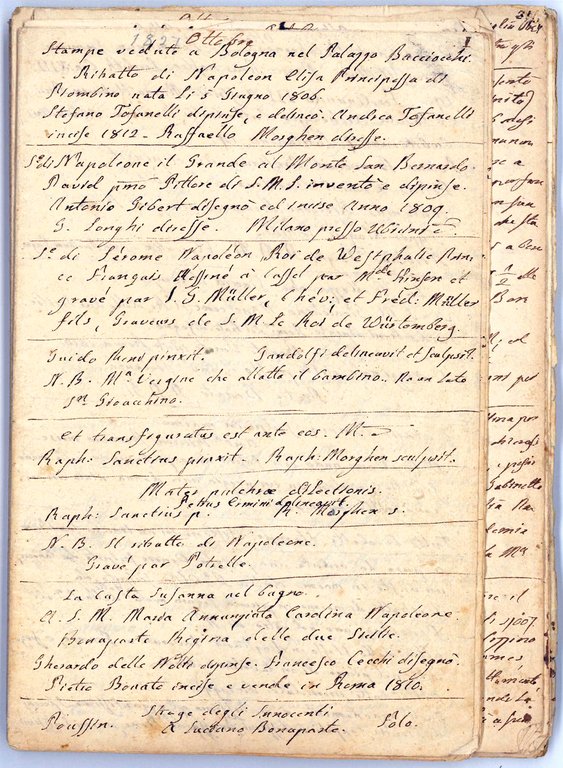 1827 Ottobre
I
Stampe vedute a Bologna nel Palazzo Bacciocchi.
Ritratto di Napoleon Elisa Principessa di
Piombino nata li 5 Giugno 1806.
Stefano Tofanelli dipinse, e delineò. Andrea Tofanelli
incise 1812 - Raffaello Morghen diresse.
So. di Napoleone il Grande al Monte San Bernardo.
David pmo Pittore di S. M. I. inventò e dipinse.
Antonio Gibert disegnò ed incise Anno 1809.
G. Longhi diresse. Milano presso Ubicini
So. di Jérome Napoléon Roi de Westphalie Prin
ce Français dessiné à Cassel par Mde Kinson et
gravé par J. G. Müller, Chév: et Fréd: Müller
fils, Graveurs de S. M. Le Roi de Würtemberg.
Guido Reni pinxit. Gandolfi delineavit et sculpsit.
N. B. Ma. Vergine che allatta il bambino. Da un lato
Sn. Gioacchino.
Et transfiguratus est ante eos. M.
Raph: Sanctius pinxit. Raph: Morghen sculpsit.
Mater pulchrae dilectionis.
Petrus Ermini delineavit.
Raph: Sanctius p. R. Morghen s.
N. B. Il ritratto di Napoleone.
Gravé par Potrelle.
La Casta Susanna nel bagno.
A. S. M. Maria Annunziata Carolina Napoleone
Bonaparte Regina delle due Sicilie.
Gherardo delle Notti dipinse. Francesco Cecchi disegnò.
Pietro Bonato incise e vende in Roma 1810.
Strage degli Innocenti
Poussin. A Luciano Bonaparte. Folo.